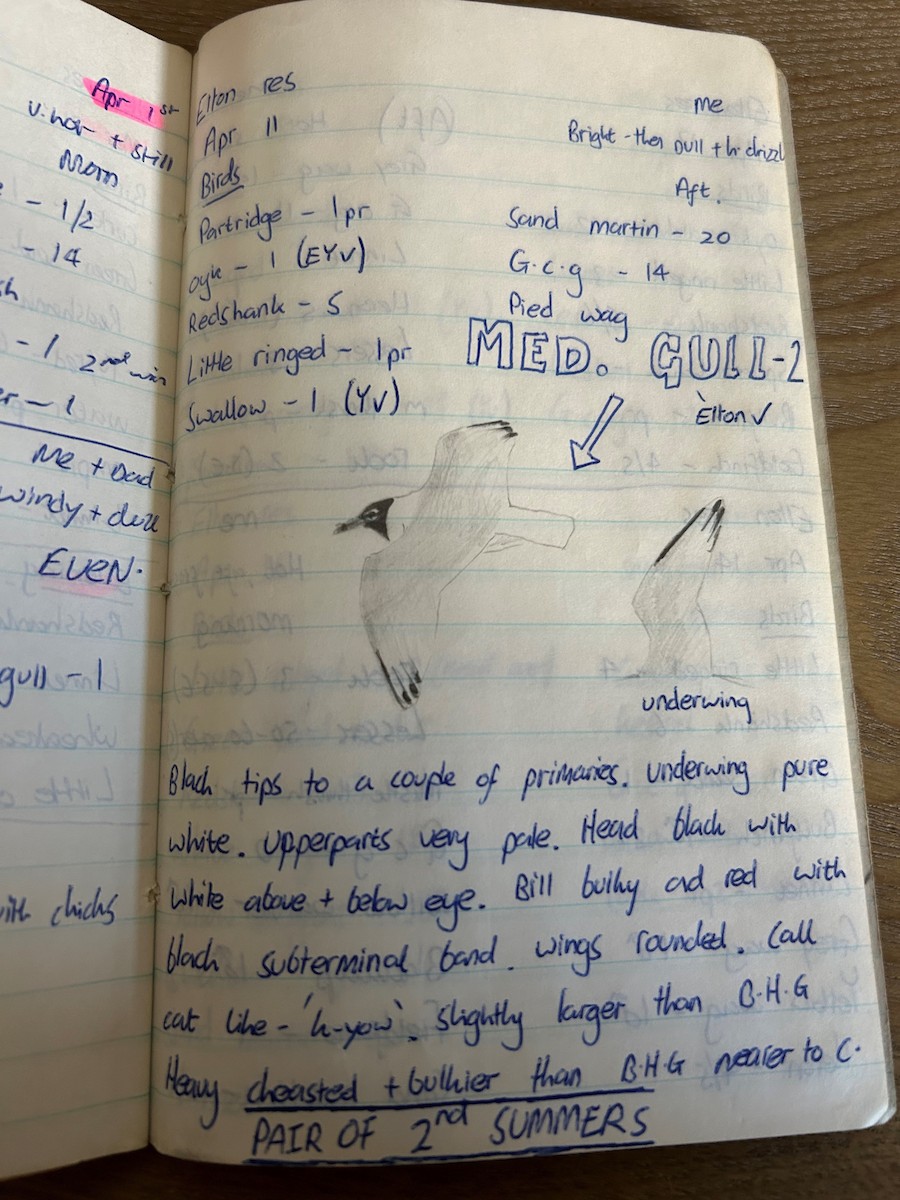 Apr 1st
V.hot + still
Morn
- 1/2
- 14
- 1 2nd win
- 1
Me + Dad
windy + dull
EVEN.
gull - 1
with chicks
Elton res
Apr 11
Birds
Partridge - 1pr
oyk - 1 (EYV)
Redshank - 5
Little ringed - 1pr
Swallow - 1 (YV)
me
Bright - then dull + lt. drizzl
Aft.
Sand martin - 20
G.c.g - 14
Pied wag
MED. GULL - 2
Elton ✓
underwing
Black tips to a couple of primaries. Underwing pure
white. Upperparts very pale. Head black with
white above + below eye. Bill bulky and red with
black subterminal band. wings rounded. Call
cat like - 'k-yow'. Slightly larger than B.H.G
Heavy cheasted + bulkier than B.H.G nearer to C.
PAIR OF 2nd SUMMERS